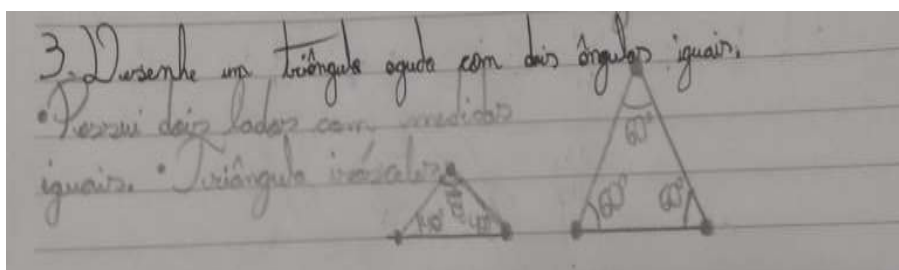 3. Desenhe um triângulo agudo com dois ângulos iguais.
• Possui dois lados com medidas
iguais. • Triângulo isósceles
60°
60° 60°
40° 40°